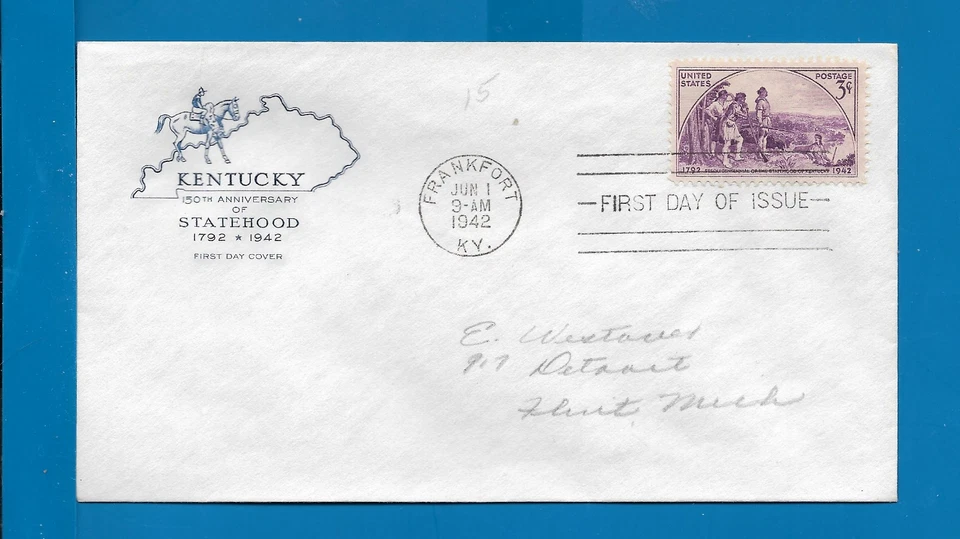 15
UNITED
STATES
POSTAGE
3¢
1792 SESQUICENTENNIAL OF THE STATEHOOD OF KENTUCKY 1942
KENTUCKY
150TH ANNIVERSARY
OF
STATEHOOD
1792 ★ 1942
FIRST DAY COVER
FRANKFORT
JUN 1
9-AM
1942
KY.
FIRST DAY OF ISSUE
E. Westover
917 Detroit
Flint Mich